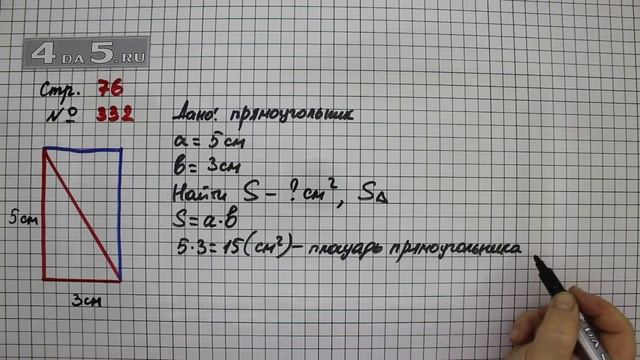 4 DA 5.RU
Стр. 76
№ 332
Дано: прямоугольник
a = 5 см
в = 3 см
Найти S - ? см², S△
S = a·в
5·3 = 15 (см²) – площадь прямоугольника
5см
3см